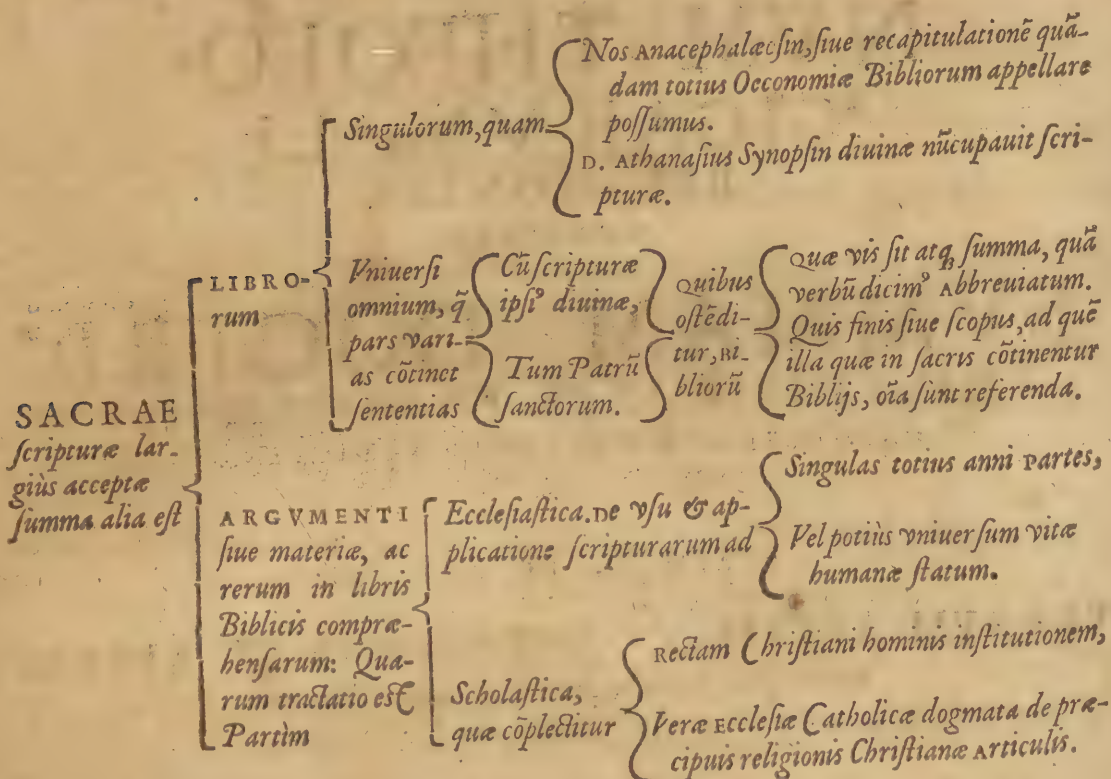 SACRAE
ſcripturæ lar-
giùs acceptæ
ſumma alia eſt
LIBRO-
rum
Singulorum, quam
Nos Anacephalæſin, ſiue recapitulationẽ quã-
dam totius Oeconomiæ Bibliorum appellare
poſſumus.
D. Athanaſius Synopſin diuinæ nũcupauit ſcri-
pturæ.
Vniuerſi
omnium, q̃
pars vari-
as cõtinet
ſententias
Cũ ſcripturæ
ipſiꝰ diuinæ,
Tum Patrũ
ſanctorum.
Quibus
oſtẽdi-
tur, Bi-
bliorũ
Quæ vis ſit atq; ſumma, quã
verbũ dicimꝰ Abbreuiatum.
Quis finis ſiue ſcopus, ad quẽ
illa quæ in ſacris cõtinentur
Biblijs, oĩa ſunt referenda.
ARGVMENTI
ſiue materiæ, ac
rerum in libris
Biblicis compræ-
henſarum: Qua-
rum tractatio eſt
Partìm
Eccleſiaſtica. De vſu & ap-
plicatione ſcripturarum ad
Singulas totius anni Partes,
Vel potiùs vniuerſum vitæ
humanæ ſtatum.
Scholaſtica,
quæ cõplectitur
Rectam Chriſtiani hominis inſtitutionem,
Veræ Eccleſiæ Catholicæ dogmata de præ-
cipuis religionis Chriſtianæ Articulis.